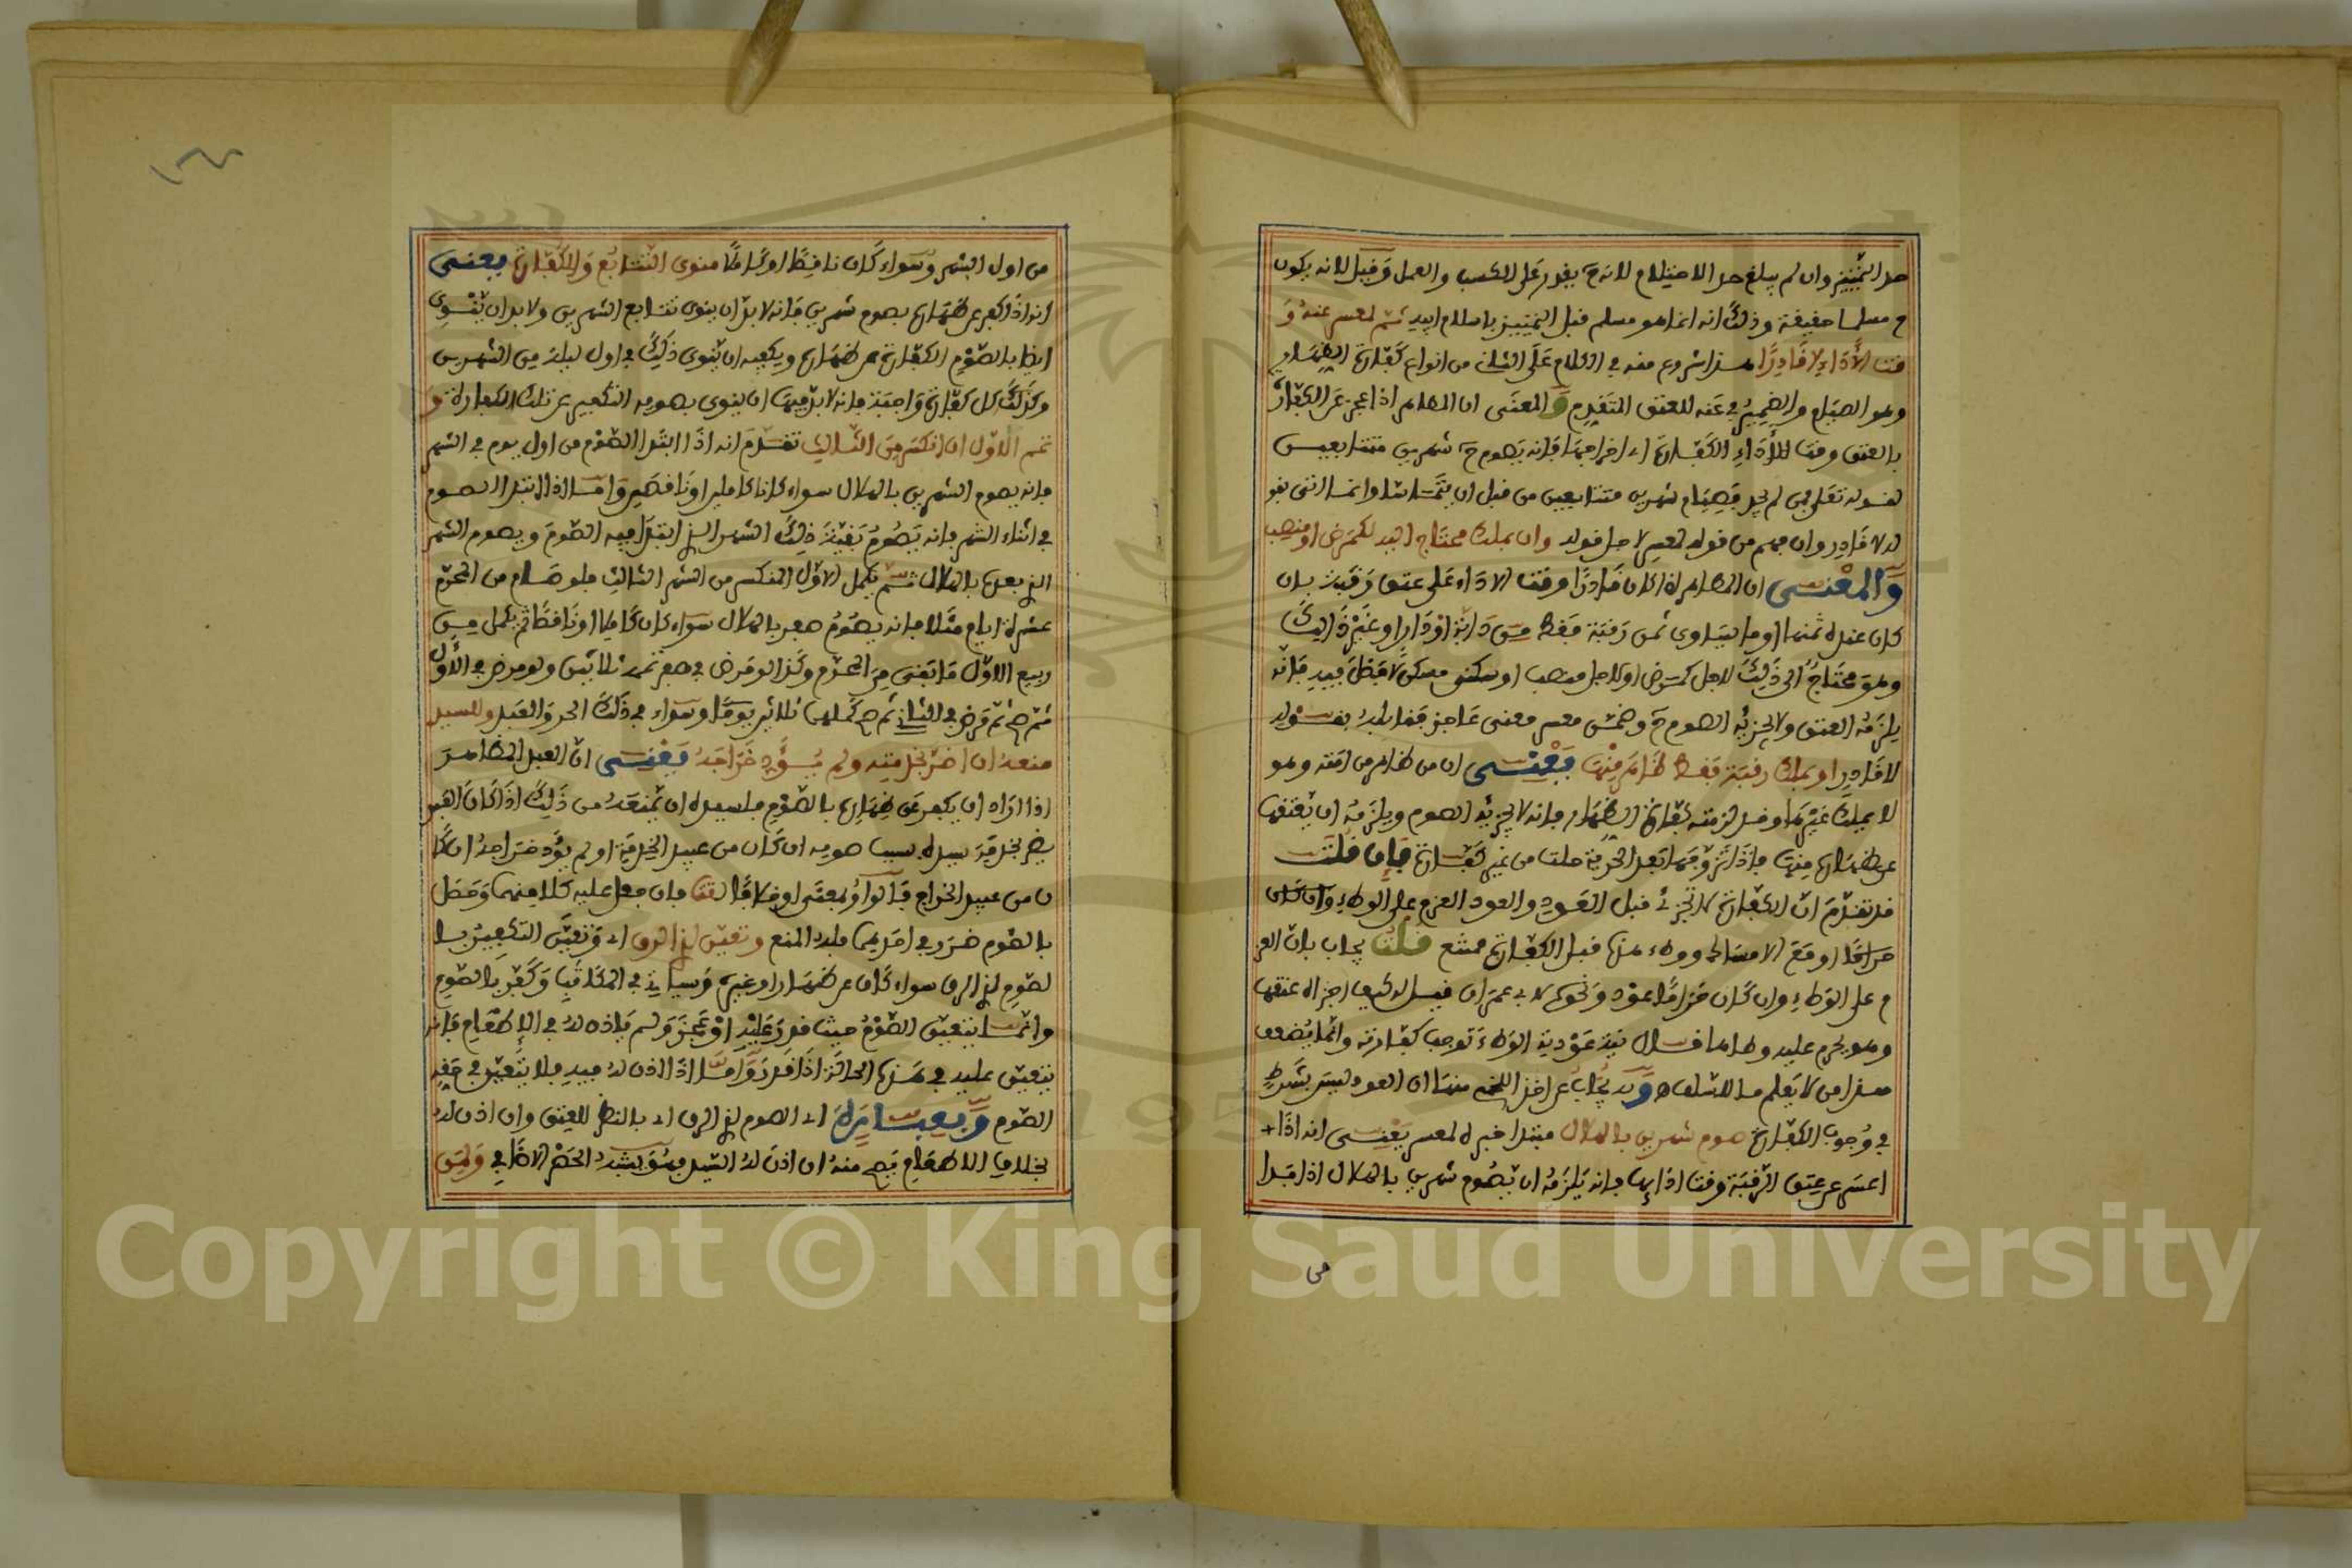 حد التمييز وان لم يبلغ حد الاحتلام لانه ح يقدر على الكسب والعمل وقيل لانه يكون
ح مسلما حقيقة وذلك انه انما هو مسلم قبل التمييز باسلام ابيه ثم لمعسر عنه و
قت الأداء لا قادرا هذا شروع منه في الكلام على الثاني من انواع كفارة الظهار
وهو الصيام والضمير في عنه للعتق المتقدم والمعنى ان المظاهر اذا عجز عن الكفارة
بالعتق وقت الأداء الكفارة اي اخراجها فانه يصوم ح شهرين متتابعين
لقوله تعلى فمن لم يجد فصيام شهرين متتابعين من قبل ان يتماسا وانما اتى بقو
له لا قادر وان فهم من قوله لمعسر لاجل قوله وان بملك محتاج اليه لكمرض او منصب
والمعنى ان المظاهر اذا كان قادرا وقت الاداء على عتق رقبة بان
كان عنده ثمنها او ما يساوي ثمن رقبة فقط من دابة او دار او غير ذالك
وهو محتاج الى ذلك لاجل كمرض او لاجل منصب او سكنى مسكن لا فضل فيه فانه
يلزمه العتق ولا يجزيه الصوم ح وضمن معسر معنى عاجز فقابله بقوله
لا قادر او بملك رقبة فقط ظاهر منها يعني ان من ظاهر من امته وهو
لا يملك غيرها وقد لزمته كفارة الظهار فانه لا يجزيه الصوم ويلزمه ان يعتقها
عن ظهاره منها فاذا تزوجها بعد الحرية حلت من غير كفارة فإن قلت
قد تقدم ان الكفارة لا تجزئ قبل العود والعود العزم على الوطء وان كان
حراما او مع الامساك ووطء هذه قبل الكفارة ممتنع قلت يجاب بان العز
م على الوطء وان كان حراما عود ونحوه لابي عمران قيل له كيف اجزاه عتقها
وهو يحرم عليه وطاها قال نية عودية الوطء توجب كفارته وانما يضعف
هذا من لا يعلم ما للسلف وقد يجاب عن اخذ اللخمي منها ان العود ليس بشرط
في وجوب الكفارة صوم شهرين بالهلال مبتدا خبره لمعسر يعني انه اذا
اعسر عن عتق الرقبة وقت ادايها فانه يلزمه ان يصوم شهرين بالهلال اذا ابتدا
من
من اول الشهر وسواء كان ناقصا او كاملا منوي التتابع والكفارة يعني
انه اذا كفر عن ظهاره بصوم شهرين فانه لا بد ان ينوي تتابع الشهرين ولا بد ان ينوي
ايضا بالصوم الكفارة عن ظهاره ويكفيه ان ينوي ذلك في اول ليلة من الشهرين
وكذلك كل كفارة واجبة فانه لا بد فيها ان ينوي بصومه التكفير عن تلك الكفارة و
تمم الاول ان انكسر من الثالث تقدم انه اذا ابتدا الصوم من اول يوم في الشهر
فانه يصوم الشهرين بالهلال سواء كانا كاملين او ناقصين واما اذا ابتدا الصوم
في اثناء الشهر فانه يصوم بقية ذلك الشهر الذي ابتدا فيه الصوم ويصوم الشهر
الذي بعده بالهلال ثم يكمل الاول المنكسر من الشهر الثالث فلو صام من المحرم
عشرة ايام مثلا فانه يصوم صفر بالهلال سواء كان كاملا او ناقصا ثم يكمل من
ربيع الاول ما بقي من المحرم وكذا لو مرض في صفر تممه ثلاثين ولو مرض في الأول
ثم صح ثم مرض في الثاني ثم صح كملهما ثلاثين يوما وسواء في ذلك الحر والعبد وللسيد
منعه ان اضر بخدمته ولم يؤد خراجه يعني ان العبد المظاهر
اذا اراد ان يكفر عن ظهاره بالصوم فلسيده ان يمنعه من ذلك اذا كان الصو
يضر بخدمة سيده بسبب صومه ان كان من عبيد الخدمة او لم يؤد خراجه ان كا
ن من عبيد الخراج قالوا او بمعنى او خلافا لتت فان جعل عليه كلا منهما وحصل
بالصوم ضرر في احدهما فله المنع وتعين لذي الرق اي وتعين التكفير با
لصوم لذي الرق سواء كان عن ظهار او غيره وسياتي في المكاتب وكفر بالصوم
وانما يتعين الصوم حيث قدر عليه او عجز ولم ياذن له في الإطعام فانه
يتعين عليه في هذه الحالة اذا قدر واما اذا اذن له فيه فلا يتعين في حقه
الصوم وتعيينه اي الصوم لذي الرق اي بالنظر للعتق وان اذن له
بخلاف الاطعام فيصح منه ان اذن له السيد